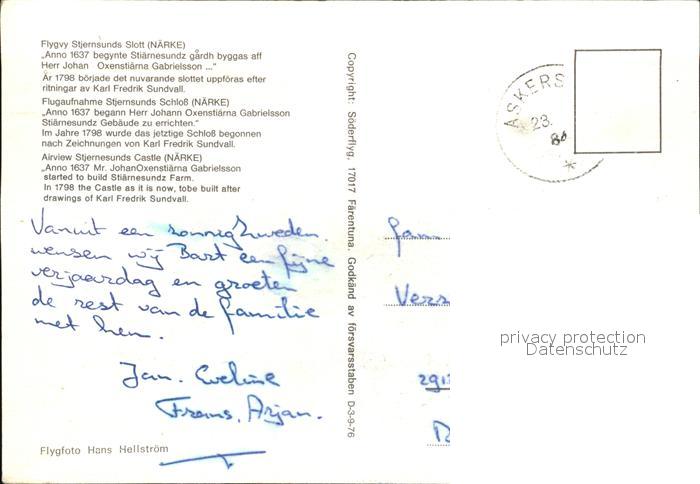 Flygvy Stjernsunds Slott (NÄRKE)
„Anno 1637 begynte Stiärnesundz gårdh byggas aff
Herr Johan Oxenstiärna Gabrielsson ..."
År 1798 började det nuvarande slottet uppföras efter
ritningar av Karl Fredrik Sundvall.
Flugaufnahme Stjernsunds Schloß (NÄRKE)
„Anno 1637 begann Herr Johann Oxenstiärna Gabrielsson
Stiärnesundz Gebäude zu errichten."
Im Jahre 1798 wurde das jetztige Schloß begonnen
nach Zeichnungen von Karl Fredrik Sundvall.
Airview Stjernesunds Castle (NÄRKE)
„Anno 1637 Mr. JohanOxenstiärna Gabrielsson
started to build Stiärnesundz Farm.
In 1798 the Castle as it is now, tobe built after
drawings of Karl Fredrik Sundvall.
Vanuit een zonnig Zweden
wensen wij Bart een fijne
verjaardag en groeten
de rest van de familie
met hem.
Jan. Eveline
Frans, Arjan.
Flygfoto Hans Hellström
Copyright: Söderflyg, 17017 Färentuna. Godkänd av försvarsstaben D-3-9-76
ASKERS
23.
fam
Vers
privacy protection
Datenschutz